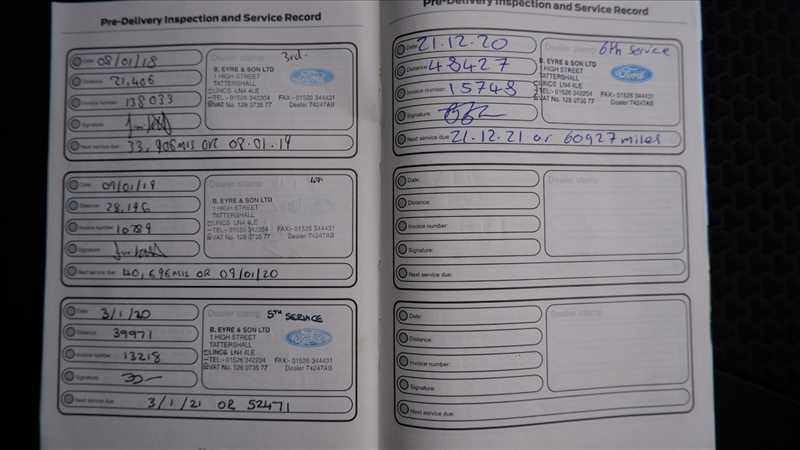 Pre-Delivery Inspection and Service Record
Date: 08/01/18
Distance: 21,406
Invoice number: 138033
Signature:
Next service due: 33,906 mls or 08.01.19
Dealer stamp 3rd.
B. EYRE & SON LTD
1 HIGH STREET
TATTERSHALL
LINCS LN4 4LE
TEL:- 01526 342204 FAX:- 01526 344431
VAT No. 128 0735 77 Dealer 74247AB
Ford
Date: 09/01/19
Distance: 28,196
Invoice number: 10789
Signature:
Next service due: 40,696 mls OR 09/01/20
Dealer stamp 4th
B. EYRE & SON LTD
1 HIGH STREET
TATTERSHALL
LINCS LN4 4LE
TEL:- 01526 342204 FAX:- 01526 344431
VAT No. 128 0735 77 Dealer 74247AB
Date: 3/1/20
Distance: 39971
Invoice number: 13218
Signature:
Next service due: 3/1/21 OR 52471
Dealer stamp 5TH SERVICE
B. EYRE & SON LTD
1 HIGH STREET
TATTERSHALL
LINCS LN4 4LE
TEL:- 01526 342204 FAX:- 01526 344431
VAT No. 128 0735 77 Dealer 74247AB
Ford
Pre-Delivery Inspection and Service Record
Date: 21.12.20
Distance: 48427
Invoice number: 15748
Signature:
Next service due: 21.12.21 or 60927 miles
Dealer stamp 6th service
B. EYRE & SON LTD
1 HIGH STREET
TATTERSHALL
LINCS LN4 4LE
TEL:- 01526 342204 FAX:- 01526 344431
VAT No. 128 0735 77 Dealer 74247AB
Ford
Date:
Distance:
Invoice number:
Signature:
Next service due:
Dealer stamp
Date:
Distance:
Invoice number:
Signature:
Next service due:
Dealer stamp